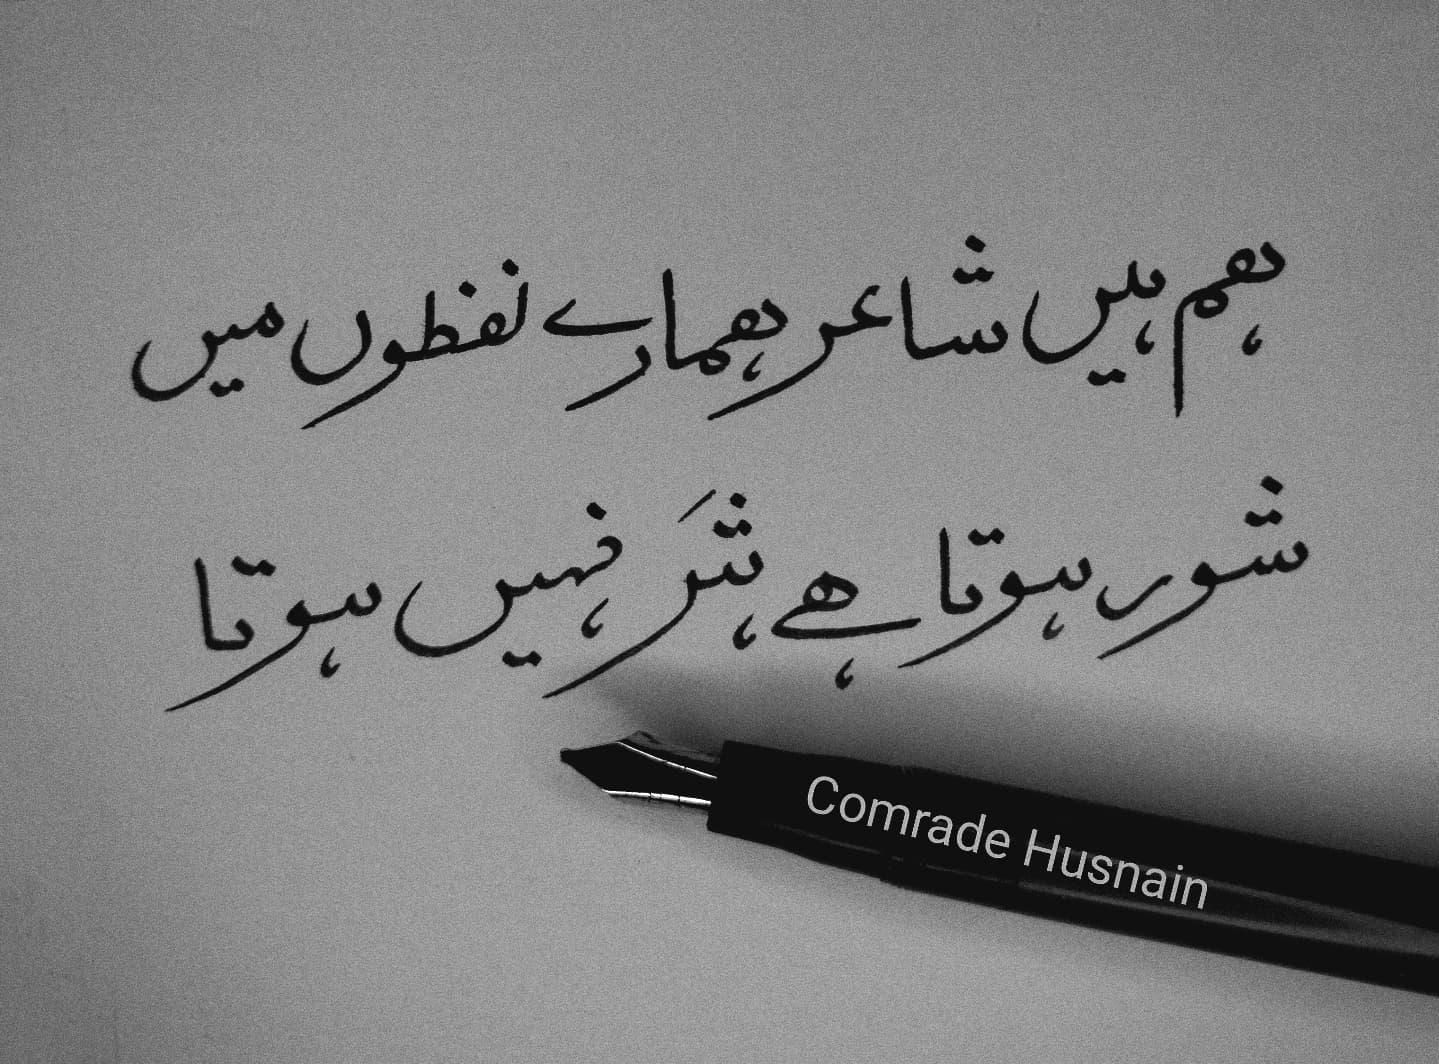 ہم ہیں شاعر ہمارے لفظوں میں
شور ہوتا ہے شَر نہیں ہوتا
Comrade Husnain